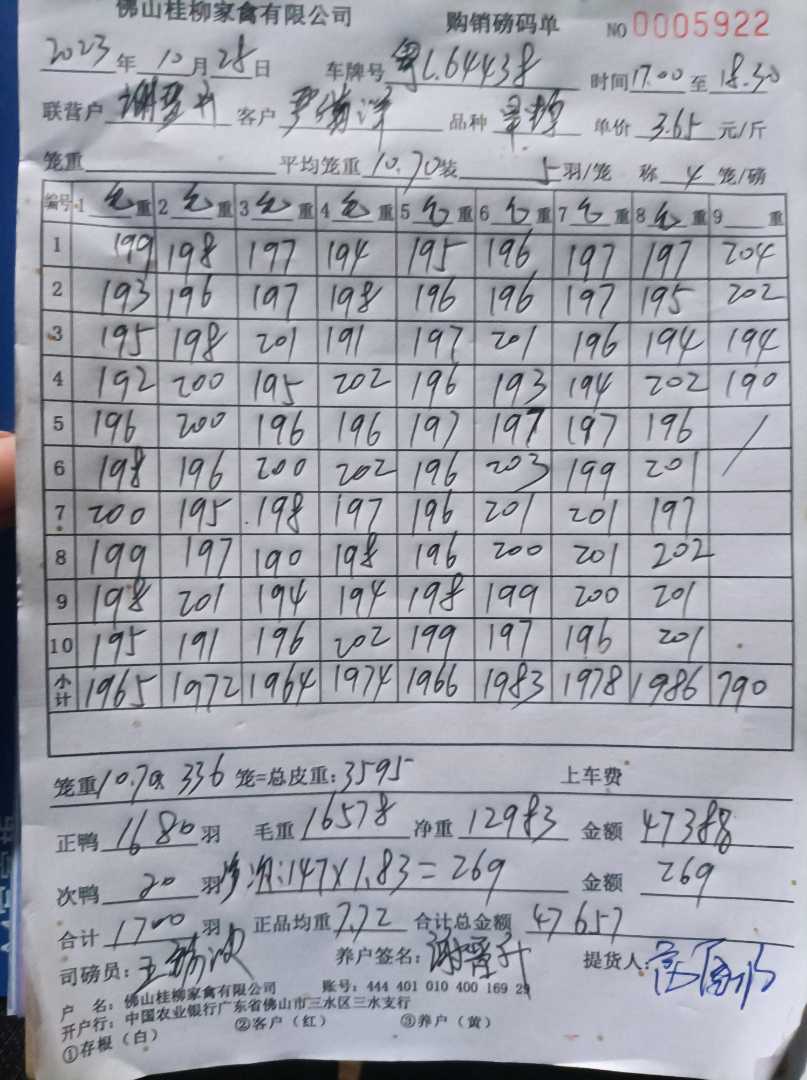 佛山桂柳家禽有限公司 购销磅码单 NO 0005922
2023年10月28日 车牌号 粤L.64438 时间17.00至18.30
联营户 谢晋升 客户 品种 单价 3.65 元/斤
笼重 平均笼重 10.70 装 5 羽/笼 称 4 笼/磅
编号 1 毛重 2 毛重 3 毛重 4 毛重 5 毛重 6 毛重 7 毛重 8 毛重 9 重
1 199 198 197 194 195 196 197 197 204
2 193 196 197 198 196 196 197 195 202
3 195 198 201 191 197 201 196 194 194
4 192 200 195 202 196 193 194 202 190
5 196 200 196 196 197 197 197 196 /
6 198 196 200 202 196 203 199 201
7 200 195 198 197 196 201 201 197
8 199 197 190 198 196 200 201 202
9 198 201 194 194 198 199 200 201
10 195 191 196 202 199 197 196 201
小计 1965 1972 1964 1974 1966 1983 1978 1986 790
笼重 10.70x 336 笼=总皮重: 3595 上车费
正鸭 1680 羽 毛重 16578 净重 12983 金额 47388
次鸭 20 羽 净次:147X1.83=269 金额 269
合计 1700 羽 正品均重 7.72 合计总金额 47657
司磅员: 王 养户签名: 谢晋升 提货人:
户 名: 佛山桂柳家禽有限公司 账号: 444 401 010 400 169 29
开户行: 中国农业银行广东省佛山市三水区三水支行
①存根(白) ②客户(红) ③养户(黄)